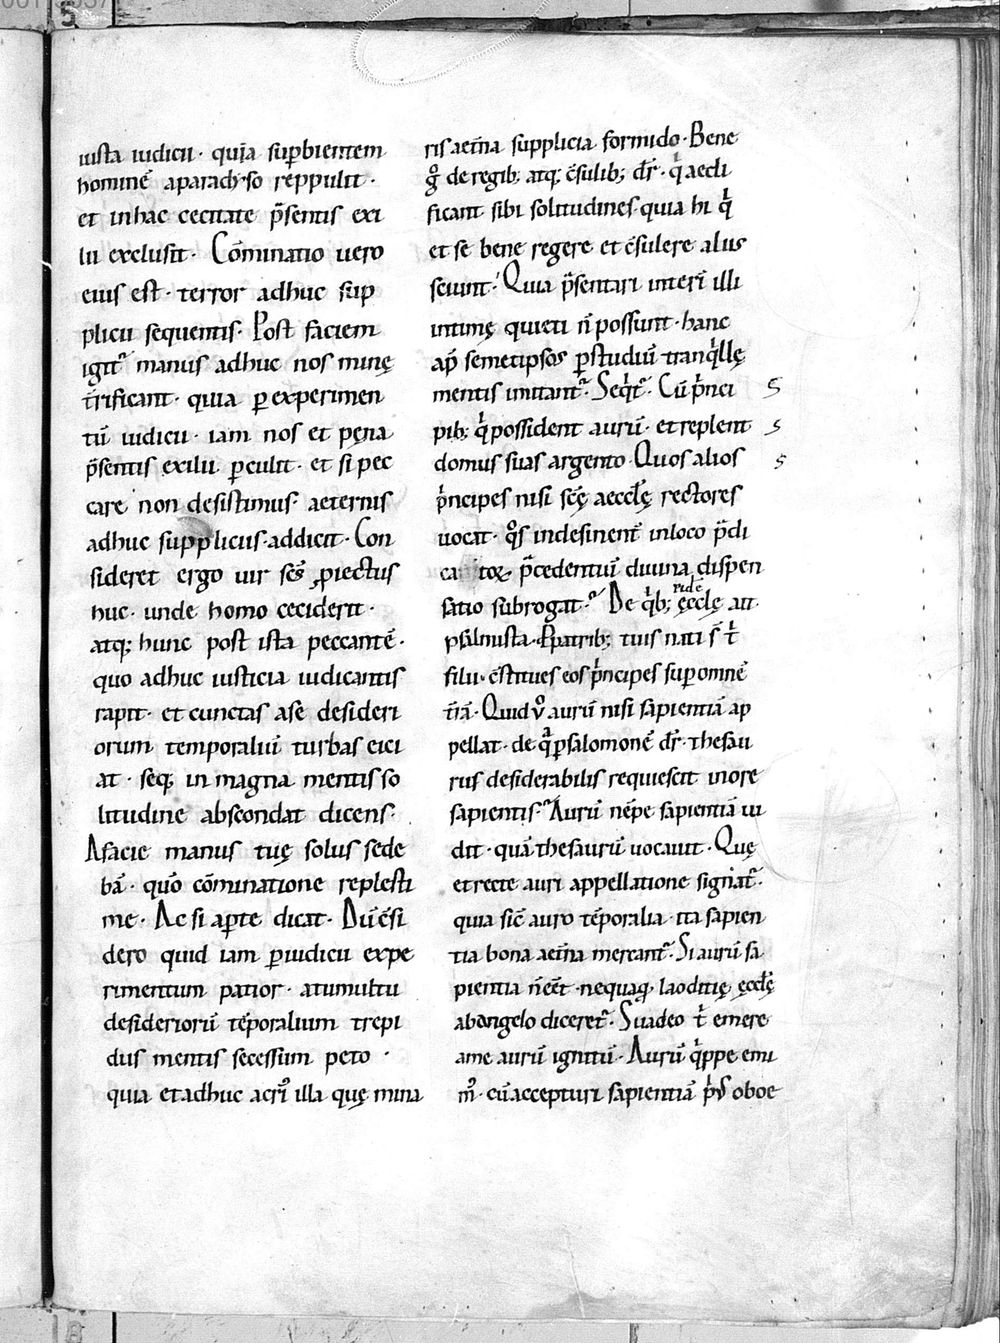 iusta iudicii · quia supbientem
hominē aparadyso reppulit ·
et in hac cecitate p̄sentis exi
lii exclusit · Cōminatio uero
eius est · terror adhuc sup
plicii sequentis · Post faciem
igit᷑ manus adhuc nos minę
t̄rificant · quia p experimen
tū iudicii · iam nos et pęna
p̄sentis exilii pculit · et si pec
care non desistimus · aeternis
adhuc suppliciis addicit · Con
sideret ergo uir sc̄s piectus
huc · unde homo ceciderit ·
atq; hunc post ista peccantē ·
quo adhuc iusticia iudicantis
rapit · et cunctas a se desideri
orum temporaliū turbas eici
at · seq; in magna mentis so
litudine abscondat dicens ·
A facie manus tuę solus sede
bā · qūo cōminatione replesti
me · Ac si apte dicat · Dū c̄si
dero quid iam p iudicii expe
rimentum patior · a tumultu
desideriorū tēporalium trepi
dus mentis secessum peto ·
quia et adhuc acri᷒ illa quę mina
ris aet̄na supplicia formido · Bene
gͦ de regib; atq; c̄sulib; dr̄ · qͥ aedi
ficant sibi solitudines · quia hi qͥ
et se bene regere et c̄sulere aliis
sciunt · Quia p̄sentari interī illi
intimę quieti n̄ possunt · hanc
ap̄ semetipsos p studiū tranqͥllę
mentis imitant᷑ · Seqͥt᷑ · Cū pͥnci
pib; qͥ possident aurū · et replent
domus suas argento · Quos alios
pͥncipes nisi sc̄ę aeccl̄ę rectores
uocat · qͦs indesinent̄ in loco p̄di
catoꝝ p̄cedentiū diuina dispen
satio subrogat · De qͥb; ęcclę ait
ride
psalmista · P patrib; tuis nati s̄ t̄
filii · c̄stitues eos pͥncipes sup omnē
t̄rā · Quid v̊ aurū nisi sapientiā ap
pellat · de qͣ p salomonē dr̄ · thesau
rus desiderabilis requiescit in ore
sapientis · Aurū nēpe sapientiā ui
dit · quā thesaurū uocauit · Quę
et recte auri appellatione signat᷑ ·
quia sic̄ auro tēporalia · ita sapien
tia bona aet̄na mercant᷑ · Si aurū sa
pientia n̄ eēt · nequaq̄ · laoditię ęccl̄ę
ab angelo diceret᷑ · Suadeo t̄ emere
a me aurū ignitū · Aurū qͥppe emi
m᷒ · cū accepturi sapientiā pͥ᷒ oboe